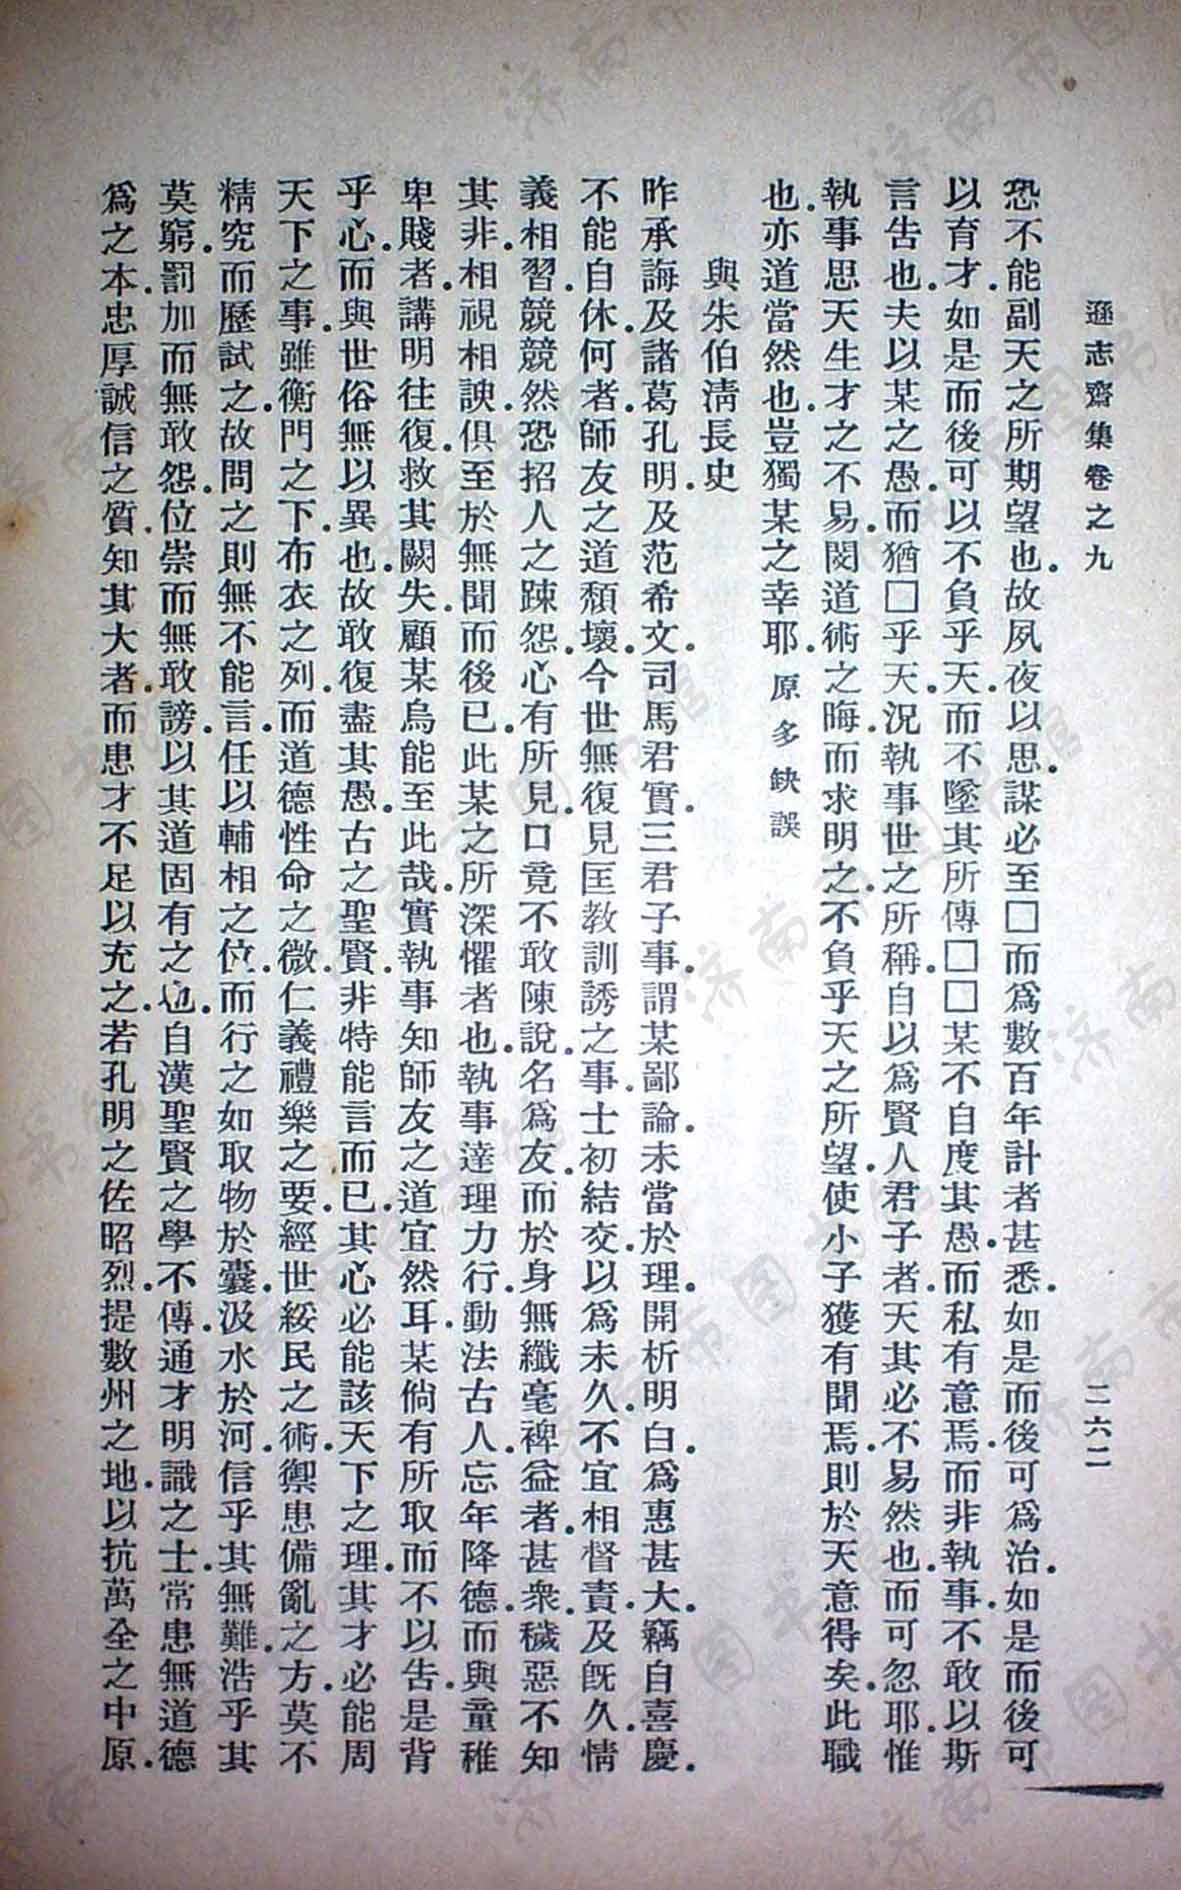 遜志齋集卷之九 二六二
恐不能副天之所期望也．故夙夜以思．謀必至□而爲數百年計者甚悉．如是而後可爲治．如是而後可
以育才．如是而後可以不負乎天．而不墜其所傳□□某不自度其愚．而私有意焉．而非執事．不敢以斯
言告也．夫以某之愚．而猶□乎天．況執事世之所稱．自以爲賢人君子者．天其必不易然也．而可忽耶．惟
執事思天生才之不易．閔道術之晦．而求明之．不負乎天之所望．使小子獲有聞焉．則於天意得矣．此職
也．亦道當然也．豈獨某之幸耶．原多缺誤
與朱伯淸長史
昨承誨及諸葛孔明．及范希文．司馬君實．三君子事．謂某鄙論．未當於理．開析明白．爲惠甚大．竊自喜慶．
不能自休．何者．師友之道頹壞．今世無復見匡教訓誘之事．士初結交．以爲未久．不宜相督責．及旣久．情
義相習．競競然恐招人之踈怨．心有所見．口竟不敢陳說．名爲友．而於身無纖毫裨益者．甚衆．穢惡不知
其非．相視相諛．俱至於無聞而後已．此某之所深懼者也．執事達理力行．動法古人．忘年降德．而與童稚
卑賤者．講明往復．救其闕失．顧某烏能至此哉．實執事知師友之道宜然耳．某倘有所取．而不以告．是背
乎心．而與世俗無以異也．故敢復盡其愚．古之聖賢．非特能言而已．其心必能該天下之理．其才必能周
天下之事．雖衡門之下．布衣之列．而道德性命之微．仁義禮樂之要．經世綏民之術．禦患備亂之方．莫不
精究而歷試之．故問之則無不能言．任以輔相之位．而行之如取物於囊．汲水於河．信乎其無難．浩乎其
莫窮．罰加而無敢怨．位崇而無敢謗．以其道固有之也．自漢聖賢之學不傳．通才明識之士．常患無道德
爲之本．忠厚誠信之質．知其大者．而患才不足以充之．若孔明之佐昭烈．提數州之地．以抗萬全之中原．